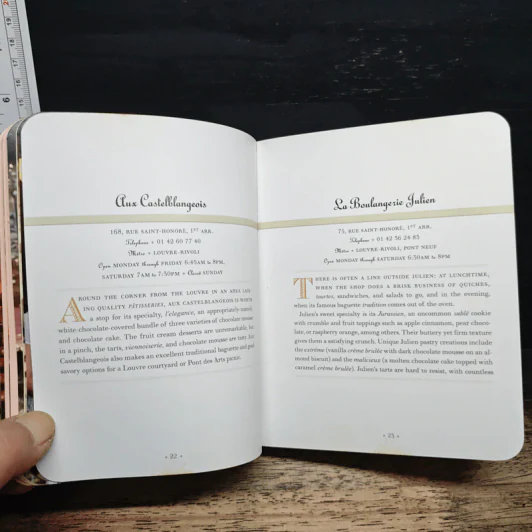 Aux Castelblangeois
168, RUE SAINT-HONORÉ, 1ER ARR.
Telephone + 01 42 60 77 40
Métro + LOUVRE-RIVOLI
Open MONDAY through FRIDAY 6:45AM to 8PM,
SATURDAY 7AM to 7:30PM + Closed SUNDAY
AROUND THE CORNER FROM THE LOUVRE IN AN AREA
QUALITY PÂTISSERIES, AUX CASTELBLANGEOIS IS WORTH
a stop for its specialty, l'elegance, an appropriately named,
white-chocolate-covered bundle of three varieties of chocolate mousse
and chocolate cake. The fruit cream desserts are unremarkable, but
in a pinch, the tarts, viennoiserie, and chocolate mousse are tasty.
Castelblangeois also makes an excellent traditional baguette and good
savory options for a Louvre courtyard or Pont des Arts picnic.
• 22 •
La Boulangerie Julien
75, RUE SAINT-HONORÉ, 1ER ARR.
Telephone + 01 42 36 24 83
Métro + LOUVRE-RIVOLI, PONT NEUF
Open MONDAY through SATURDAY 6:30AM to 8PM
THERE IS OFTEN A LINE OUTSIDE JULIEN: AT LUNCHTIME,
WHEN THE SHOP DOES A BRISK BUSINESS OF QUICHES,
tourtes, sandwiches, and salads to go, and in the evening,
when its famous baguette tradition comes out of the oven.
Julien's sweet specialty is its Jurassien, an uncommon sablé cookie
with crumble and fruit toppings such as apple cinnamon, pear choco-
late, or raspberry orange, among others. Their buttery yet firm texture
gives them a satisfying crunch. Unique Julien pastry creations include
the extrême (vanilla crème brûlée with dark chocolate mousse on an al-
mond biscuit) and the malicieux (a molten chocolate cake topped with
caramel crème brûlée). Julien's tarts are hard to resist, with countless
• 23 •